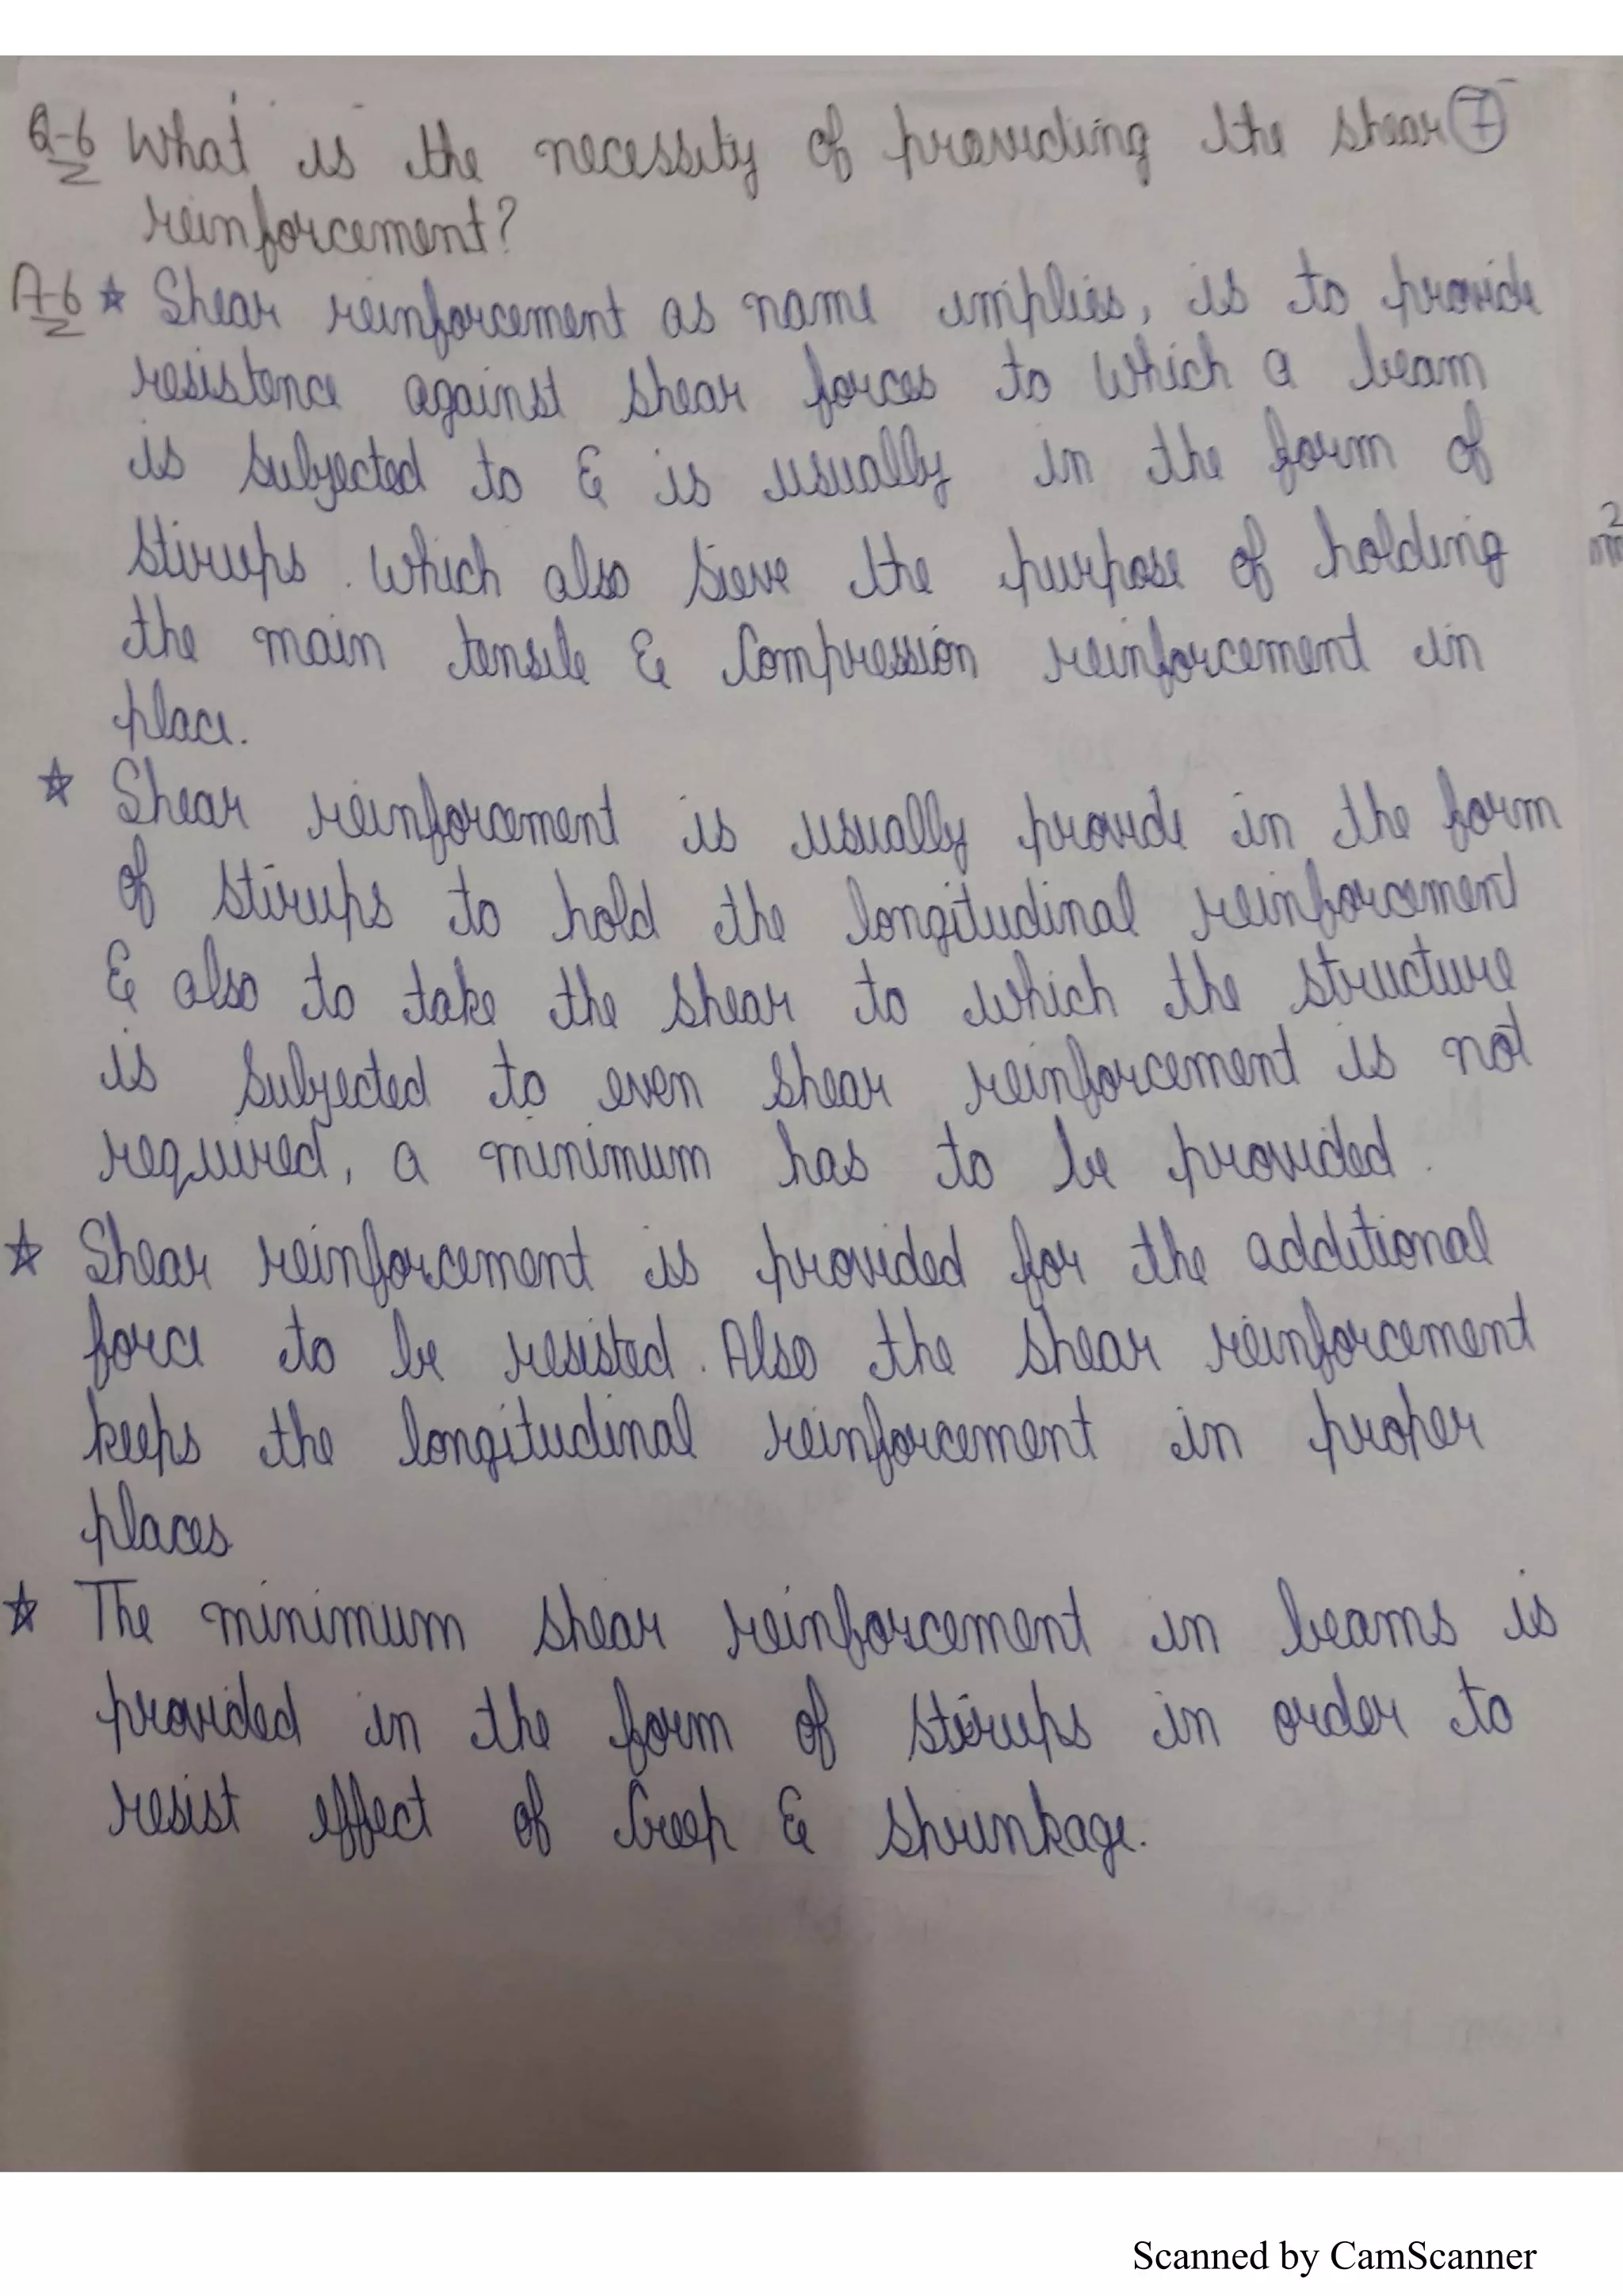 Q-6 What is the necessity of providing the shear 7
reinforcement?
A-6 ☆ Shear reinforcement as name implies, is to provide
resistence against shear forces to which a beam
is subjected to & is usually in the form of
stirups. which also sieve the purpose of holding
the main tensile & Compression reinforcement in
place.
☆ Shear reinforcement is usually provide in the form
of stirups to hold the longitudinal reinforcement
& also to take the shear to which the structure
is subjected to even shear reinforcement is not
required, a minimum has to be provided.
☆ Shear reinforcement is provided for the additional
force to be resisted. Also the shear reinforcement
keeps the longitudinal reinforcement in proper
places
☆ The minimum shear reinforcement in beams is
provided in the form of stirups in order to
resist effect of Creep & shrunkage.
Scanned by CamScanner